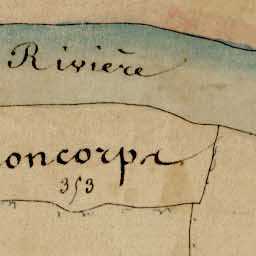 Rivière
oncorps
353